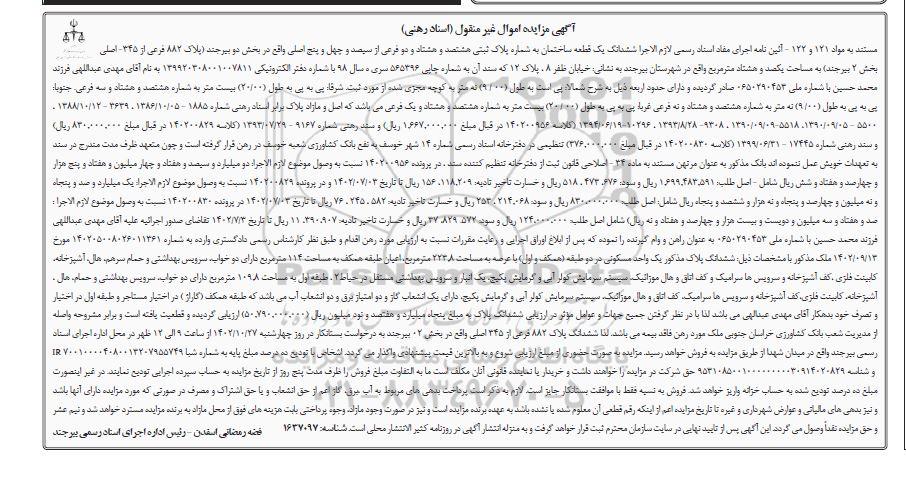 آگهی مزایده اموال غیر منقول (اسناد رهنی)
مستند به مواد ۱۲۱ و ۱۲۲ - آئین نامه اجرای مفاد اسناد رسمی لازم الاجرا ششدانگ یک قطعه ساختمان به شماره پلاک ثبتی هشتصد و هشتاد و دو فرعی از سیصد و چهل و پنج اصلی واقع در بخش دو بیرجند (پلاک ۸۸۲ فرعی از ۳۴۵- اصلی
بخش ۲ بیرجند) به مساحت یکصد و هشتاد مترمربع واقع در شهرستان بیرجند به نشانی: خیابان ظفر ۸ ، پلاک ۱۲ که سند آن به شماره چاپی ۵۶۵۳۹۶ سری ه سال ۹۸ با شماره دفتر الکترونیکی ۱۳۹۹۲۰۳۰۸۰۰۱۰۰۷۸۱۱ به نام آقای مهدی عبداللهی فرزند
محمد حسین با شماره ملی ۰۶۵۰۲۹۰۴۵۳ صادر گردیده و دارای حدود اربعه ذیل به شرح شمالا: پی است به طول (۹/۰۰) نه متر به کوچه مجزی شده از مورد ثبت. شرقا: پی به پی به طول (۲۰/۰۰) بیست متر به شماره هشتصد و هشتاد و سه فرعی. جنوبا:
پی به پی به طول (۹/۰۰) نه متر به شماره هشتصد و هشتاد و نه فرعی غربا: پی به پی به طول (۲۰/۰۰) بیست متر به شماره هشتصد و هشتاد و یک فرعی می باشد که اصل و مازاد پلاک برابر اسناد رهنی شماره ۱۸۸۵ - ۱۳۸۶/۱۰/۰۵ ، ۳۶۳۹ - ۱۳۸۸/۱۰/۱۲ ،
۵۵۰۰ - ۱۳۹۰/۰۹/۰۵، ۵۵۱۸-۱۳۹۰/۰۹/۰۹ ، ۹۳۰۸- ۱۳۹۳/۸/۲۸ ، ۱۰۲۹۶-۱۳۹۴/۰۶/۱۹ (کلاسه ۱۴۰۲۰۰۹۵۶ در قبال مبلغ ۱,۶۶۷,۰۰۰,۰۰۰ ریال) و سند رهنی شماره ۹۱۶۷ - ۱۳۹۳/۰۷/۲۹ (کلاسه ۱۴۰۲۰۰۸۲۹ در قبال مبلغ ۸۳۰,۰۰۰,۰۰۰ ریال)
و سند رهنی شماره ۱۷۴۴۵ - ۱۳۹۹/۰۶/۳۱ (کلاسه ۱۴۰۲۰۰۸۳۰ در قبال مبلغ ۳۷۶,۰۰۰,۰۰۰) تنظیمی در دفترخانه اسناد رسمی شماره ۱۴ شهر خوسف به نفع بانک کشاورزی شعبه خوسف در رهن قرار گرفته است و چون متعهد ظرف مدت مندرج در سند
به تعهدات خویش عمل ننموده اند بانک مذکور به عنوان مرتهن مستند به ماده ۳۴ - اصلاحی قانون ثبت از دفترخانه تنظیم کننده سند ، در پرونده ۱۴۰۲۰۰۹۵۶ نسبت به وصول موضوع لازم الاجرا: دو میلیارد و سیصد و هفتاد و چهار میلیون و هفتاد و پنج هزار
و چهارصد و هفتاد و شش ریال شامل - اصل طلب: ۱,۶۹۹,۴۸۳,۵۹۱ ریال و سود: ۵۱۸,۴۷۳,۶۷۶ ریال و خسارت تاخیر تادیه: ۱۵۶,۱۱۸,۲۰۹ ریال تا تاریخ ۱۴۰۲/۰۷/۰۳ و در پرونده ۱۴۰۲۰۰۸۲۹ نسبت به وصول موضوع لازم الاجرا: یک میلیارد و صد و پنجاه
و نه میلیون و چهارصد و پنجاه و نه هزار و ششصد و پنجاه ریال شامل: اصل طلب: ۸۳۰,۰۰۰,۰۰۰ ریال و سود: ۲۵۳,۲۱۴,۰۶۸ ریال و خسارت تاخیر تادیه: ۷۶,۲۴۵,۵۸۲ ریال تا تاریخ ۱۴۰۲/۰۷/۰۳ در پرونده ۱۴۰۲۰۰۸۳۰ نسبت به وصول موضوع لازم الاجرا :
صد و هفتاد و سه میلیون و دویست و بیست هزار و چهارصد و هفتاد و نه ریال) شامل اصل طلب: ۱۲۴,۰۰۰,۰۰۰ ریال و سود: ۳۷,۸۲۹,۵۷۲ ریال و خسارت تاخیر تادیه: ۱۱,۳۹۰,۹۰۷ ریال تا تاریخ ۱۴۰۲/۷/۳ تقاضای صدور اجرائیه علیه آقای مهدی عبداللهی
فرزند محمد حسین با شماره ملی ۰۶۵۰۲۹۰۴۵۳ به عنوان راهن و وام گیرنده را نموده که پس از ابلاغ اوراق اجرایی و رعایت مقررات نسبت به ارزیابی مورد رهن اقدام و طبق نظر کارشناس رسمی دادگستری وارده به شماره ۱۴۰۲۰۵۰۰۸۰۲۶۰۱۱۳۶۱ مورخ
۱۴۰۲/۰۹/۱۳ ملک مذکور با مشخصات ذیل: ششدانگ پلاک مذکور یک واحد مسکونی در دو طبقه (همکف و اول) با عرصه به مساحت ۲۲۳.۸ مترمربع، اعیان طبقه همکف به مساحت ۱۱۴ مترمربع دارای دو خواب، سرویس بهداشتی و حمام سرهم، هال، آشپزخانه،
کابینت فلزی ، کف آشپزخانه و سرویس ها سرامیک و کف اتاق و هال موزائیک، سیستم سرمایش کولر آبی و گرمایش پکیج، یک انبار و سرویس بهداشتی مستقل در حیاط ۲. طبقه اول به مساحت ۱۰۹.۸ مترمربع دارای دو خواب، سرویس بهداشتی و حمام، هال ،
آشپزخانه، کابینت فلزی، کف آشپزخانه و سرویس ها سرامیک، کف اتاق و هال موزائیک، سیستم سرمایش کولر آبی و گرمایش پکیج. دارای یک انشعاب گاز و دو امتیاز برق و دو انشعاب آب می باشد که طبقه همکف (گاراژ) در اختیار مستاجر و طبقه اول در اختیار
و تصرف خود بدهکار آقای مهدی عبدالهی می باشد لذا با در نظر گرفتن جمیع جهات و عوامل مؤثر در ارزیابی ششدانگ پلاک به مبلغ پنجاه میلیارد و هفتصد و نود میلیون ریال (۵۰,۷۹۰,۰۰۰,۰۰۰) ارزیابی گردیده و قطعیت یافته است و برابر مشروحه واصله
از مدیریت شعب بانک کشاورزی خراسان جنوبی ملک مورد رهن فاقد بیمه می باشد. لذا ششدانگ پلاک ۸۸۲ فرعی از ۳۴۵ اصلی واقع در بخش ۰۲ بیرجند به درخواست بستانکار در روز چهارشنبه ۱۴۰۲/۱۰/۲۷ از ساعت ۹ الی ۱۲ ظهر در محل اداره اجرای اسناد
رسمی بیرجند واقع در میدان شهدا از طریق مزایده به فروش خواهد رسید. مزایده به صورت حضوری از مبلغ ارزیابی شروع و به بالاترین قیمت پیشنهادی واگذار می گردد. اشخاص با تودیع ده درصد مبلغ پایه به شماره شبا IR ۷۰۰۱۰۰۰۰۴۰۸۰۰۱۳۲۰۷۹۵۵۷۴۹
و شناسه ۹۵۳۱۰۸۵۰۰۱۰۰۰۰۰۰۰۰۰۳۰۹۱۴۰۲۰۸۲۹ حق شرکت در مزایده را خواهند داشت و خریدار یا نماینده قانونی آنان مکلف است ما به التفاوت مبلغ فروش را ظرف مدت پنج روز از تاریخ مزایده به حساب سپرده اجرایی تودیع نمایند. در غیر اینصورت
مبلغ ده درصد تودیع شده به حساب خزانه واریز خواهد شد. فروش به نسیه فقط با موافقت بستانکار جایز است. لازم به ذکر است پرداخت بدهی های مربوط به آب، برق، گاز اعم از حق انشعاب و یا حق اشتراک و مصرف در صورتی که مورد مزایده دارای آنها باشد
و نیز بدهی های مالیاتی و عوارض شهرداری و غیره تا تاریخ مزایده اعم از اینکه رقم قطعی آن معلوم شده یا نشده باشد به عهده برنده مزایده است و نیز در صورت وجود مازاد، وجوه پرداختی بابت هزینه های فوق از محل مازاد به برنده مزایده مسترد خواهد شد و نیم عشر
و حق مزایده نقداً وصول می گردد. این آگهی پس از تایید نهایی در سایت سازمان محترم ثبت قرار خواهد گرفت و به منزله انتشار آگهی در روزنامه کثیر الانتشار محلی است. شناسه: ۱۶۳۷۰۹۷
فضه رمضانی اسفدن - رئیس اداره اجرای اسناد رسمی بیرجند
ParsNamadData
۰۲۱-۸۸۳۴۹۶۷۰-۵